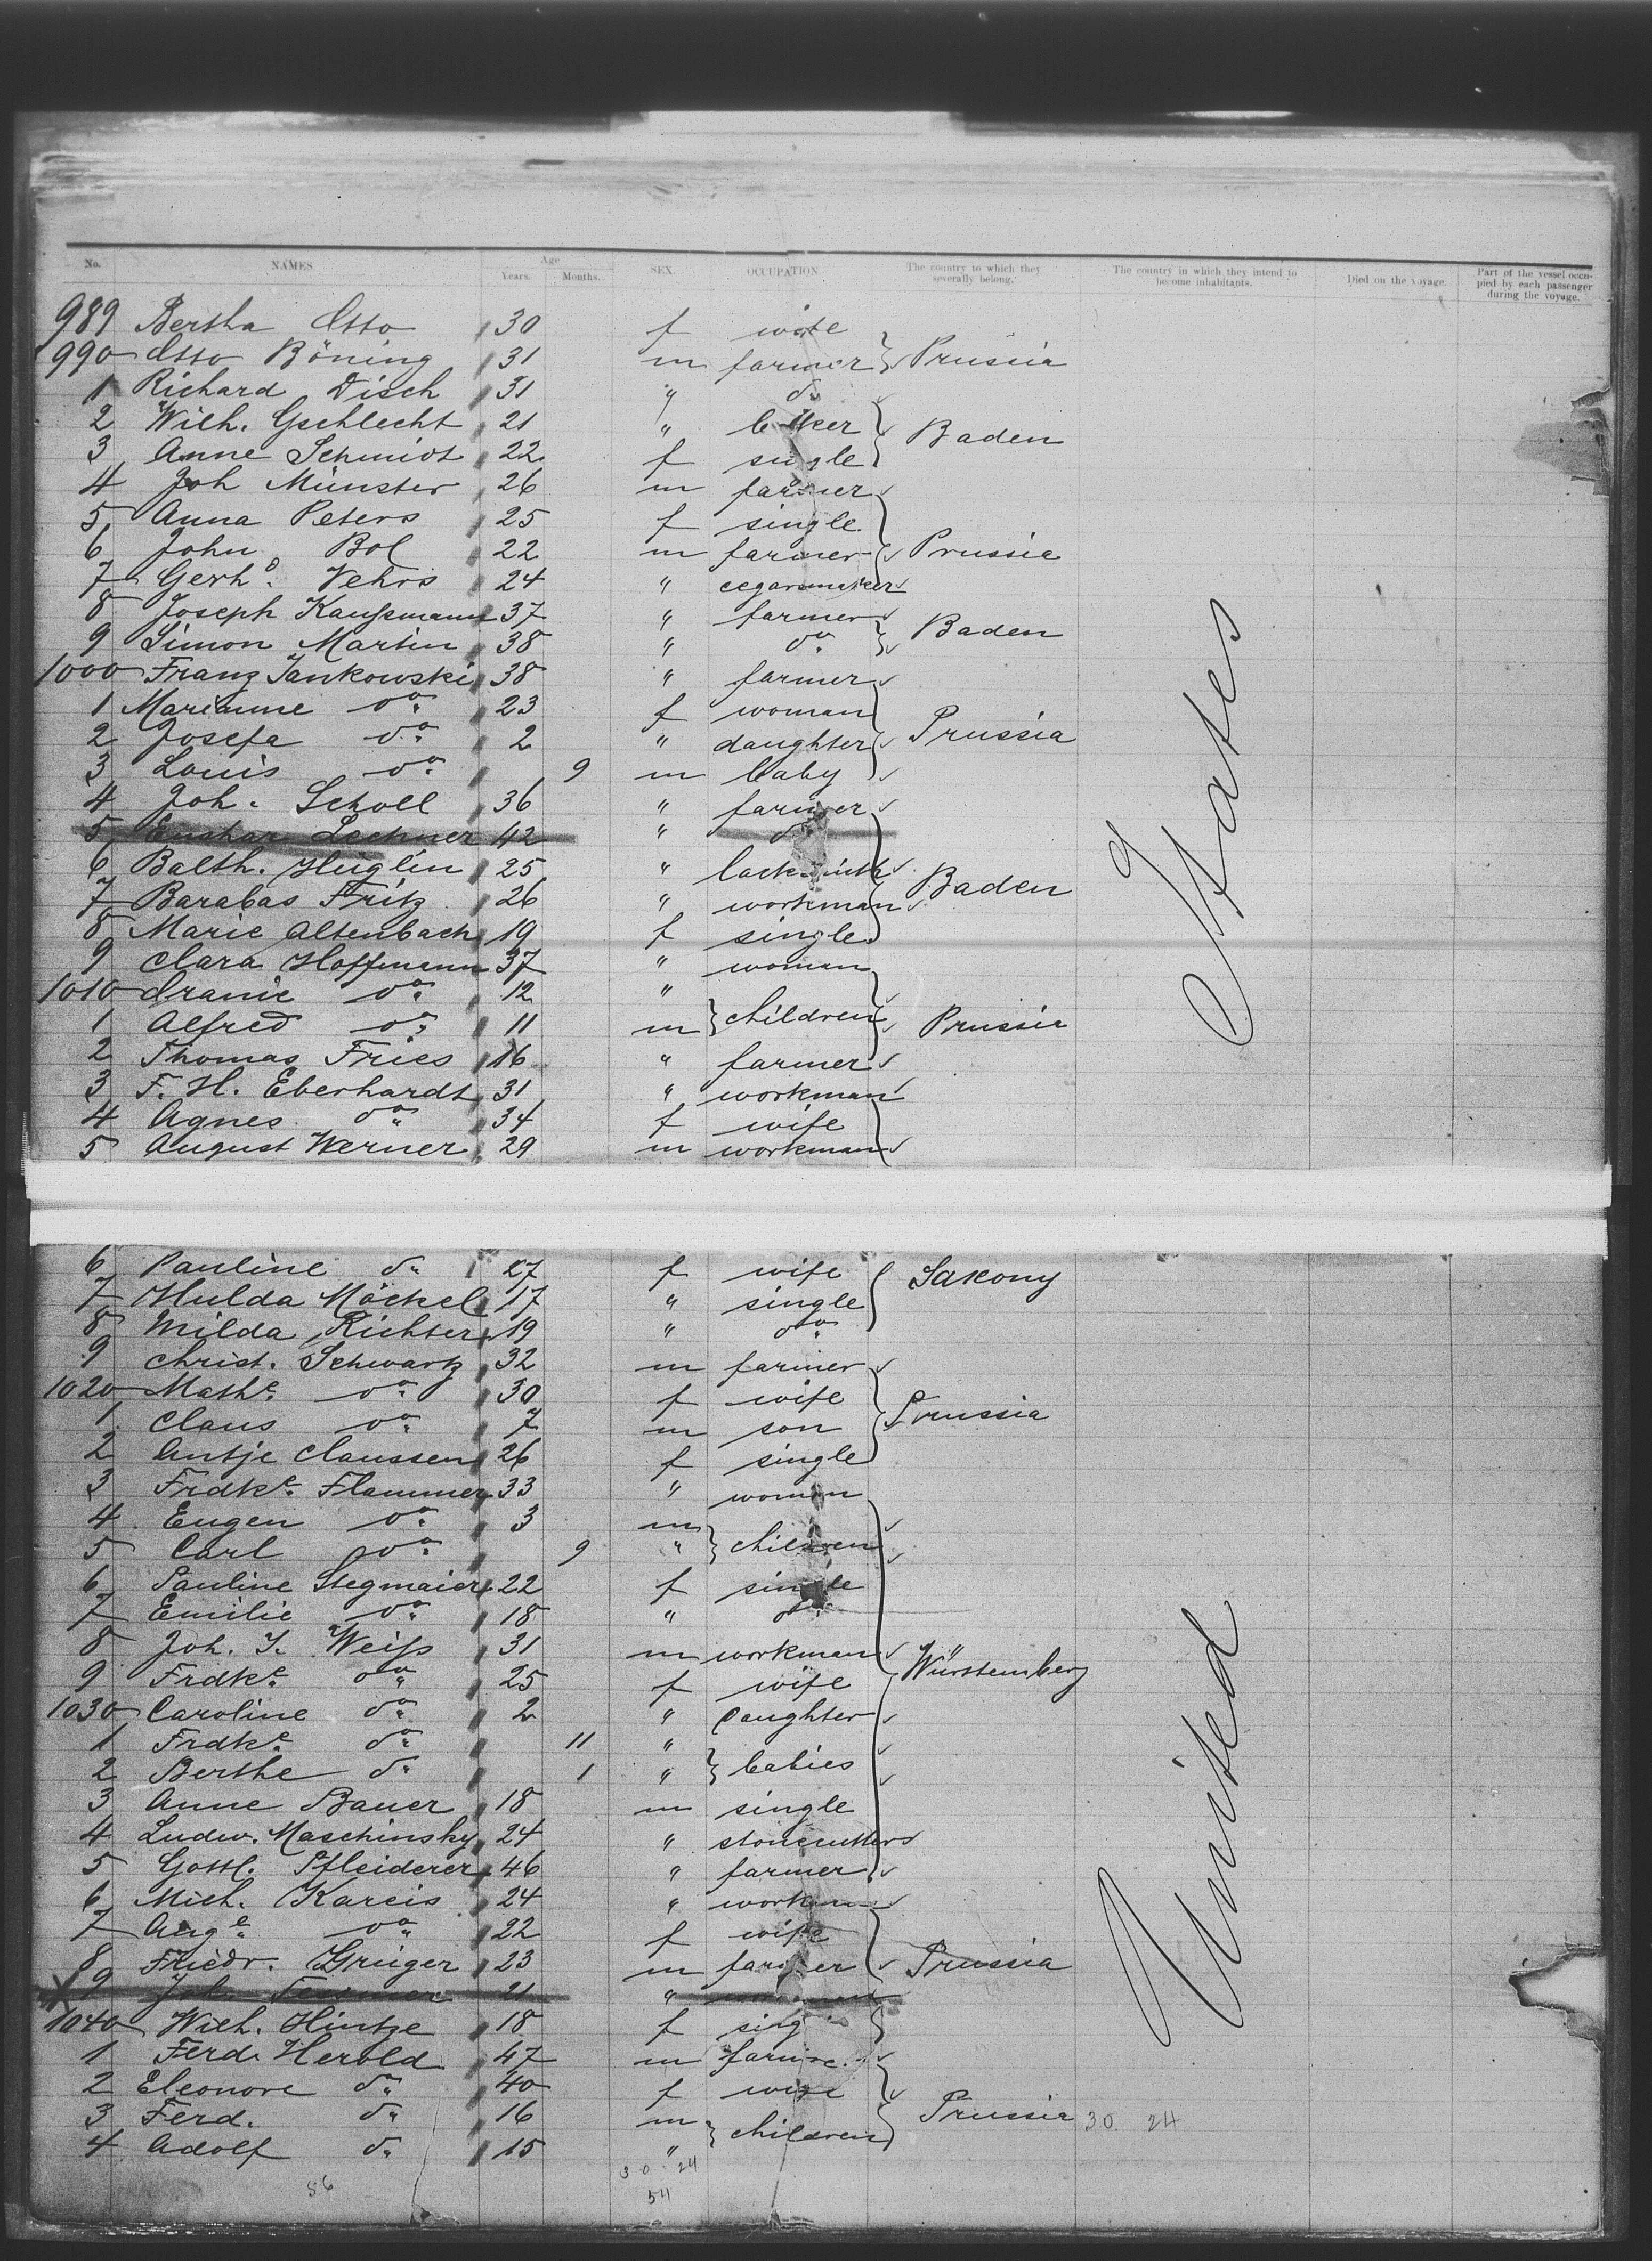 No. NAMES Age Years. Months. SEX. OCCUPATION The country to which they severally belong. The country in which they intend to become inhabitants. Died on the voyage. Part of the vessel occupied by each passenger during the voyage.
989 Bertha Otto 30 f wife
990 Otto Böning 31 m farmer } Prussia
1 Richard Disch 31 " do
2 Wilh. Gschlecht 21 " baker } Baden
3 Anne Schmidt 22 f single
4 Joh Münster 26 m farmer
5 Anna Peters 25 f single
6 John Bol 22 m farmer } Prussia
7 Gerhd. Vehrs 24 " cegarsmaker
8 Joseph Kaufsmann 37 " farmer } Baden
9 Simon Martin 38 " do
1000 Franz Jankowski 38 " farmer
1 Marianne do 23 f woman
2 Josefa do 2 " daughter } Prussia
3 Louis do 9 m baby
4 Joh. Scholl 36 " farmer
5 Lechner 42 " do
6 Balth. Hüglin 25 " locksmith
7 Barabas Fritz 26 " workman } Baden
8 Marie Altenbach 19 f single
9 Clara Hoffmann 37 " woman
1010 Oranie do 12 "
1 Alfred do 11 m } children } Prussia
2 Thomas Fries 16 " farmer
3 F. H. Eberhardt 31 " workman
4 Agnes do 34 f wife
5 August Werner 29 m workman
6 Pauline do 27 f wife } Saxony
7 Hulda Möckel 17 " single
8 Milda Richter 19 " do
9 Christ. Schwartz 32 m farmer
1020 Mathe. do 30 f wife
1 Claus do 7 m son } Prussia
2 Antje Claussen 26 f single
3 Frdke. Flammer 33 " woman
4 Eugen do 3 m
5 Carl do 9 " } children
6 Pauline Stegmaier 22 f single
7 Emilie do 18 " do
8 Joh. J. Weiss 31 m workman
9 Frdke. do 25 f wife } Württemberg
1030 Caroline do 2 " daughter
1 Frdke. do 11 "
2 Berthe do 1 " } babies
3 Anne Bauer 18 m single
4 Ludw. Maschinsky 24 " stonecutters
5 Gottl. Pfleiderer 46 " farmer
6 Mich. Kareis 24 " workman
7 Auge. do 22 f wife
8 Friedr. Grüger 23 m farmer } Prussia
9 Joh. 21 "
1040 Wilh. Hintze 18 f sing
1 Ferd. Herold 47 m farmer
2 Eleonore do 40 f wife
3 Ferd. do 16 m } children } Prussia 30. 24
4 Adolf do 15 "
56 30 24
54
United States